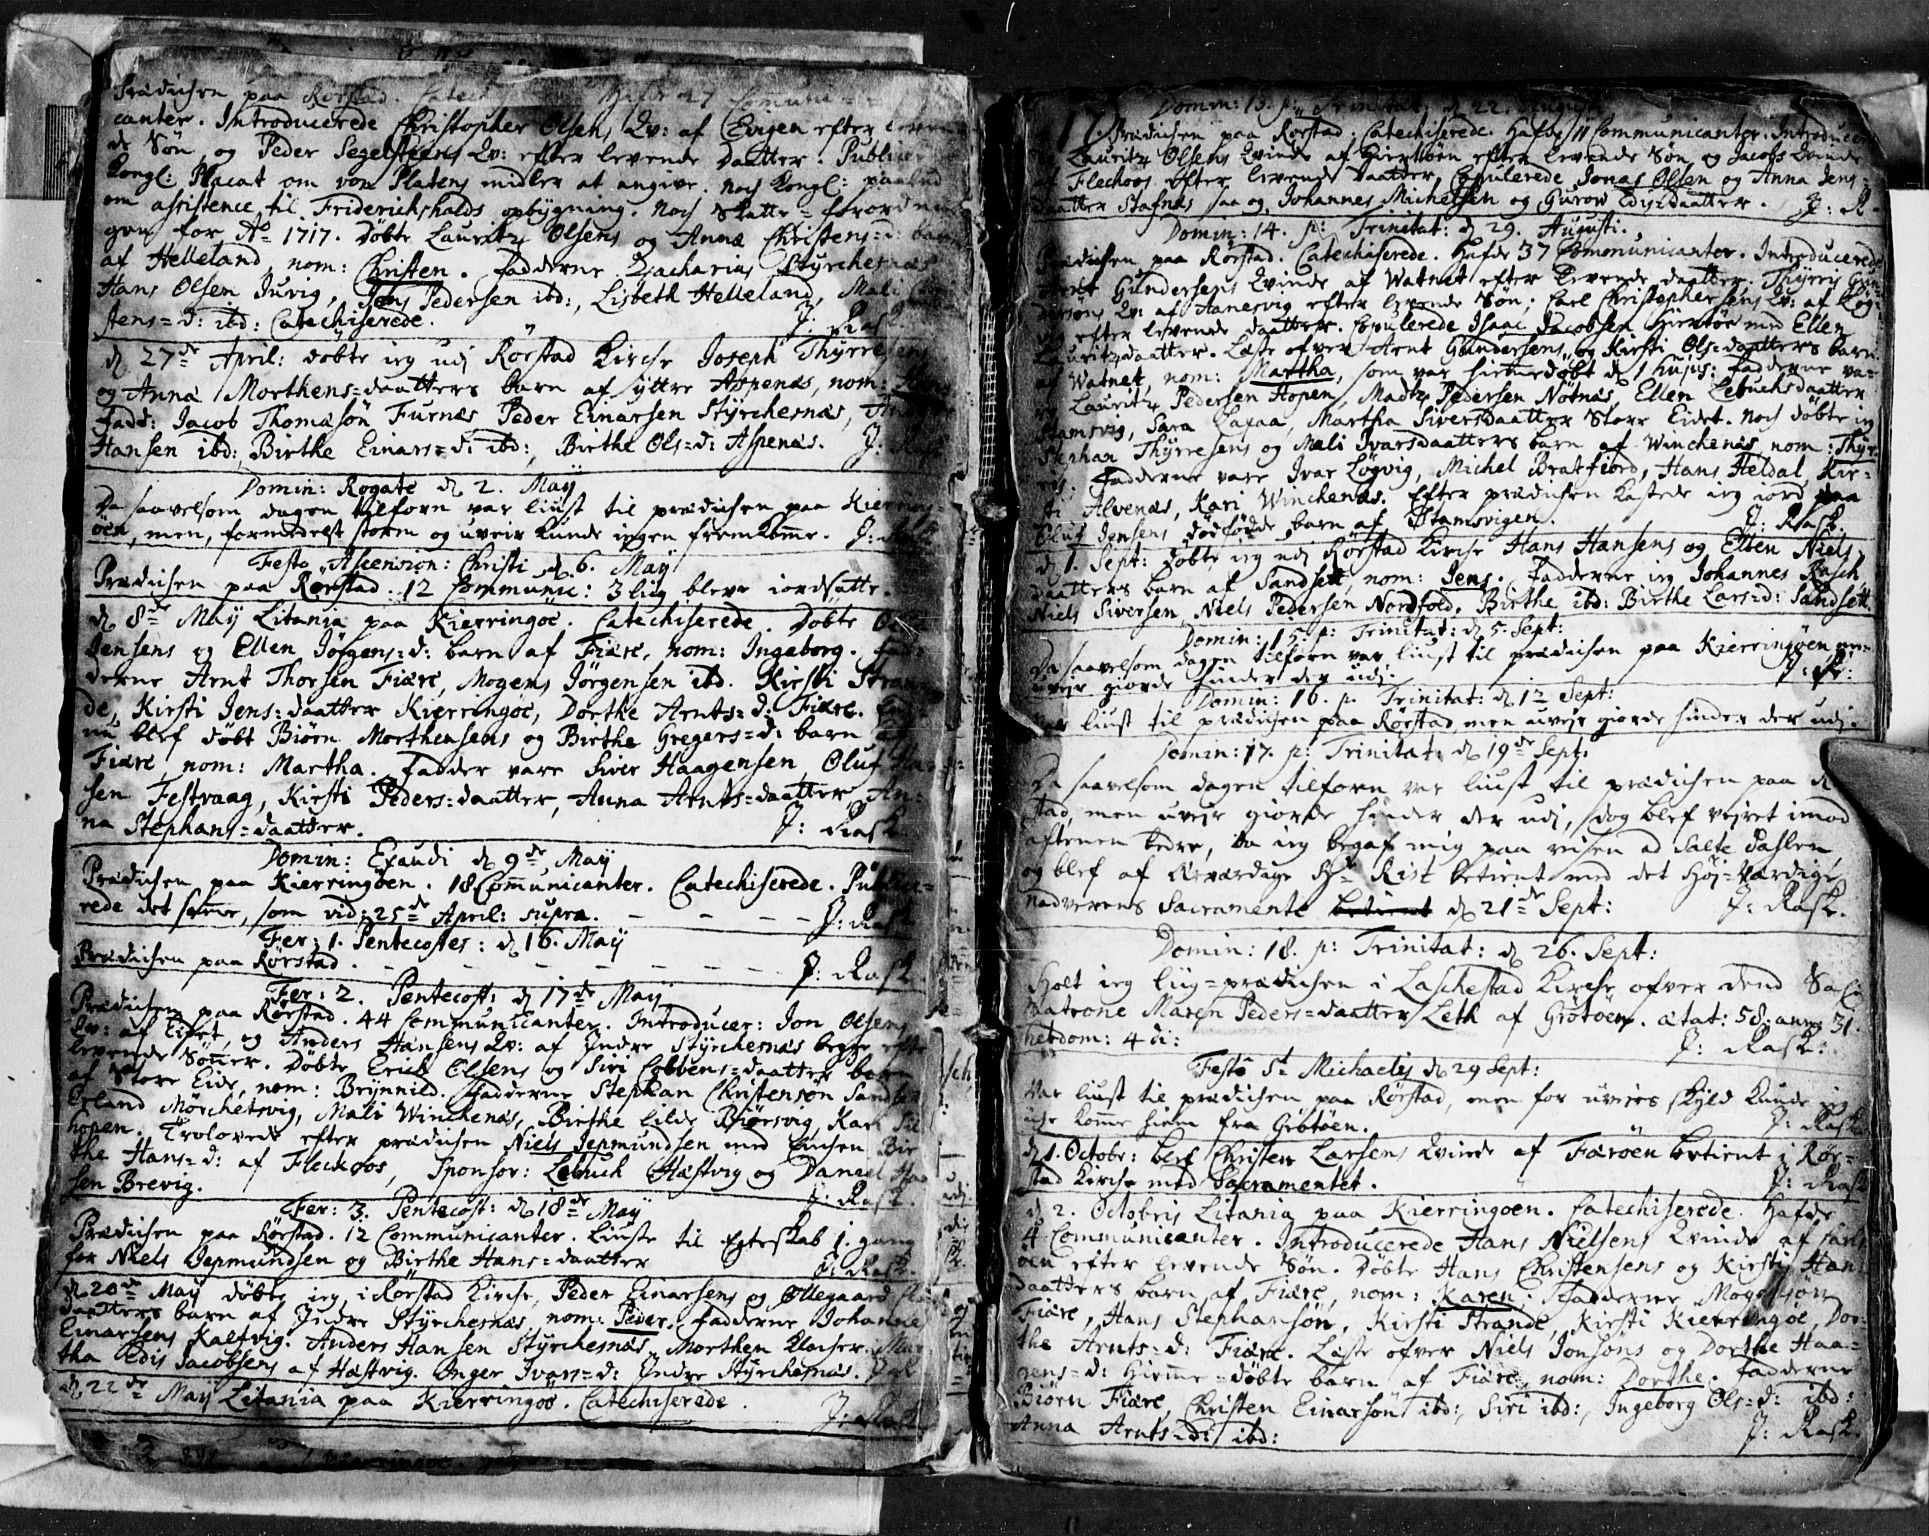 Prædichen paa Rørstad. Catech Hafde 27 Communi=
canter. Introducerede Christopher Olsens Qv: af Evigen efter leven
de Søn, og Peder Segelsteens Qv: efter levende Daatter. Publicer
Kongl: Placat om von Platens midler at angive. noch Kongl: paabud
om assistence til Friderichshalds opbygning. Noch Skatte=forordnin
gen for Aō 1717. Døbte Lauritz Olsens og Anna Christens=d: barn
af Helleland nom: Christen. Fadderne Zacharias Styrchesnæs
Hans Olsen Juvig, Jens Pedersen ibd:, Lisbeth Helleland, Mali
Jens=d: ibd: Catechiserede. J: Rask
d 27de April: døbte ieg udj Rørstad Kirche Joseph Thyrresens
og Anna Morthens=daatters barn af yttre Aspenæs, nom:
Fadd: Jacob Thomasøn Furnæs Peder Einarsen Styrchesnæs,
Hansen ibd: Birthe Einars=d: ibd:, Birthe Ols=d: Aspenæs. J: Rask
Domin: Rogate d 2. May
Da saavelsom dagen tilforn var liust til prædichen paa Kierring=
øen, men, formedelst storm og uveir kunde ingen fremkom̄e. J: Rask
Festo Ascension: Christi d 6. May
Prædichen paa Rørstad. 12 Communic: 3 liig bleve iordsatte.
d 8de May Litania paa Kierringøe. Catechiserede. Døbte
Jensens og Ellen Jørgens=d: barn af Fiære, nom: Ingeborg. Fad=
derne Arnt Thorsen Fiære, Mogens Jørgensen ibd. Kirsti Stran=
de, Kirsti Jens=daatter Kierringøe, Dorthe Arnts=d: Fiære.
nu blef døbt Biørn Morthensens og Birthe Gregers=d: barn af
Fiære, nom: Martha. Fadder vare Siver Haagensen, Oluf Han
sen Festvaag, Kirsti Peders=daatter, Anna Arnts=daatter, An=
na Stephans=daatter. J: Rask
Domin: Exaudi d 9de May
Prædichen paa Kierringøen. 18 Com̄unicanter. Catechiserede. Public=
rede det sam̄e, som vid: 25de April: supra. J: Rask
Fer: 1. Pentecostes: d 16. May
Prædichen paa Rørstad. J: Rask.
Fer: 2. Pentecost: d 17de May
Prædichen paa Rørstad. 44 Communicanter. Introducer: Jon Olsens
Qv: af Eidet, og Anders Hansens Qv: af Indre Styrchesnæs begge efter
levende Søn̄er. Døbte Erich Olsens og Siri Cobbens=daatters barn
af Store Eide, nom: Brynnild. Fadderne Stephan Christensøn Sandset
Erland Mørchesvig, Mali Winchenæs, Birthe Lilde Biørsvig, Kari Sil
hopen. Trolovede efter prædichen Niels Jepmundsen med Enchen Bir
the Hans=d: af Fleckoos, Sponsor: Lebuch Hæstvig og Daniel
sen Brevig. J: Rask
Fer: 3. Pentecost: d 18de May
Prædichen paa Rørstad. 12 Communicanter. Liuste til Egteskab 1. gang
for Niels Jepmundsen og Birthe Hans=daatter J: Rask.
d 20de May døbte ieg i Rørstad Kirche, Peder Einarsens og Ollegaard
daatters barn af Indre Styrchesnæs nom: Peder. Fadderne Johannes
Einarsens Kalfvig. Anders Hansen Styrchesnæs Morthen Mar
tha Edis Jacobsens af Hæstvig. Inger Ivars=d: Indre Styrchesnæs.
d 22de May Litania paa Kierringøe. Catechiserede. J: Rask
Domin: 13. p: Trinitat: d 22. Augusti
Prædichen paa Rørstad. Catechiserede. Hafde 11 Communicanter. Introducer
Lauritz Olsens Qvinde af Giertøen efter levende Søn og Jacobs Qvinde
af Flechoos efter levende Daatter. Copulerede Jonas Olsen og Anna Jens=
daatter Stafnæs saa og, Johannes Michelsen og Gurow Edis=daatter. J: R.
Domin: 14. p: Trinitat: d 29. Augusti.
Prædichen paa Rørstad. Catechiserede. Hafde 37 Communicanter. Introducerede
Arent Gundersens Qvinde af Watnet efter levende daatter. Thyrris Gun=
dersens Qv: af Aanesvig efter levende Søn; Carl Christophersens Qv: af Løg=
vig efter levende daatter. Copulerede Isaac Jacobsen Giertøe med Ellen
Lauritzdaatter. Læste ofver Arnt Gundersens og Kirsti Ols=daatters barn
af Watnet, nom: Martha, som var hiemedøbt d 1 hujus: Fadderne va=
re Lauritz Pedersen Hopen, Madtz Pedersen Nøtnæs, Ellen Lebuchsdaatter
Stamsvig, Sara Laxaa, Martha Siversdaatter Store Eidet. Noch døbte ieg
Stephan Thyrresens og Mali Ivarsdaatters barn af Winchenæs nom: Thyr=
res. Fadderne vare Ivar Løgvig, Michel Bratfiord, Hans Heldal, Kir=
sti Alvenæs, Kari Winchenæs. Efter prædichen kastede ieg iord paa
Oluf Jensens dødfødde barn af Stamsvigen. J: Rask.
d 1. Sept: døbte ieg udj Rørstad Kirche Hans Hansens og Ellen Niels=
daatters barn af Sandset, nom: Jens. Fadderne ieg Johannes Rasch
Niels Siversen, Niels Pedersen Nordfold. Birthe ibd: Birthe Lars=d: Sandsett.
Domin: 15. p: Trinitat: d 5. Sept:
Da saavelsom dagen tilforn var liust til prædichen paa Kierringøen men
uvejr giorde hinder der udj. J: R:
Domin: 16. p. Trinitat: d 12 Sept:
Var liust til prædichen paa Rørstad men uvejr giorde hinder der udj.
Domin: 17. p: Trinitat: d 19de Sept:
Da saavelsom dagen tilforn var liust til prædichen paa R
stad, men uvejr giorde hinder der udj, dog blef vejret imod
aftenen bedre, da ieg begaf mig paa rejsen ad Salte Dahlen,
og blef af Ærværdige Hr Rist betient med det Høj=Værdige
nadverens Sacramente betient d 21de Sept: J: Rask.
Domin: 18. p: Trinitat: d 26. Sept:
Holt ieg liig=prædichen i Laschestad Kirche ofver dend Sal
Matrone Maren Peders=daatter Leth af Grøtøen. ætat: 58: ann 31.
hebdom: 4 di: J: Rask:
Festo St Michaelis d 29 Sept:
Var liust til prædichen paa Rørstad, men for uvejrs skyld kunde ieg
iche kom̄e hiem fra Grøtøen. J: Rask
d 1. Octobr: blef Christen Larsens Qvinde af Færøen betient i Rør=
stad Kirche med Sacramentet. J: Rask
d 2. Octobris Litania paa Kierringøen. Catechiserede. Hafde
4 Communicanter. Introducerede Hans Nielsens Qvinde af
øen efter levende Søn. Døbte Hans Christensens og Kirsti Han
daatters barn af Fiære, nom: Karen. Fadderne Mogens
Fiære, Hans Stephansøn, Kirsti Strande, Kirsti Kierringøe, Dor=
the Arnts=d: Fiære. Læste ofver Niels Jonsøns og Dorthe Haa=
gens=d: Hiem̄e=døbte barn af Fiære, nom: Dorthe. Fadderne
Biørn Fiære, Christen Einarsøn ibd:, Siri ibd:, Ingeborg Ols=d: ibd:
Anna Arnts=d: ibd: J: Rask.